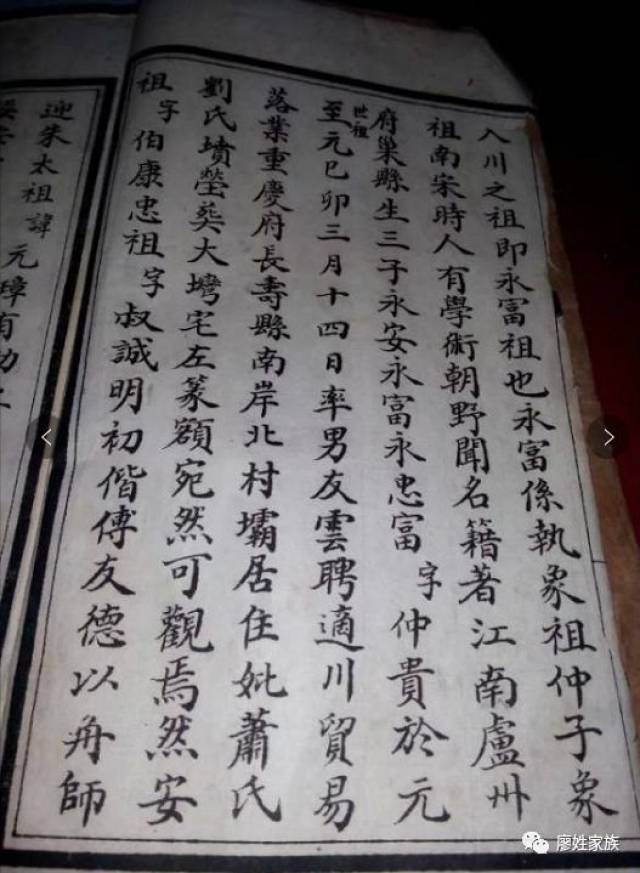 入川之祖即永富祖也永富係執象祖仲子象
祖南宋時人有學術朝野聞名籍著江南盧州
府巢縣生三子永安永富永忠富字仲貴於元
世祖至元巳卯三月十四日率男友雲聘適川貿易
落業重慶府長壽縣南岸北村壩居住妣蕭氏
劉氏墳塋葬大塆宅左篆額宛然可觀焉然安
祖字伯康忠祖字叔誠明初偕傅友德以舟師
迎朱太祖諱元璋有功
廖姓家族